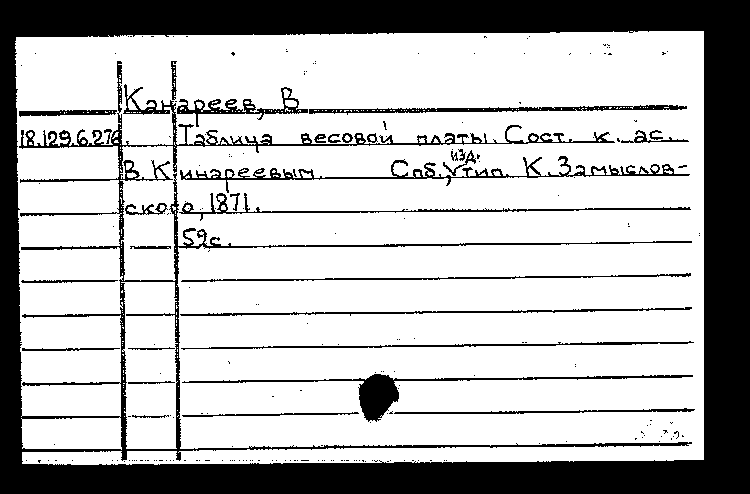 Канареев, В
18.129.6.276. Таблица весовой платы. Сост. к. ас.
В. Кинареевым. Спб., изд. тип. К. Замыслов-
ского, 1871.
59с.